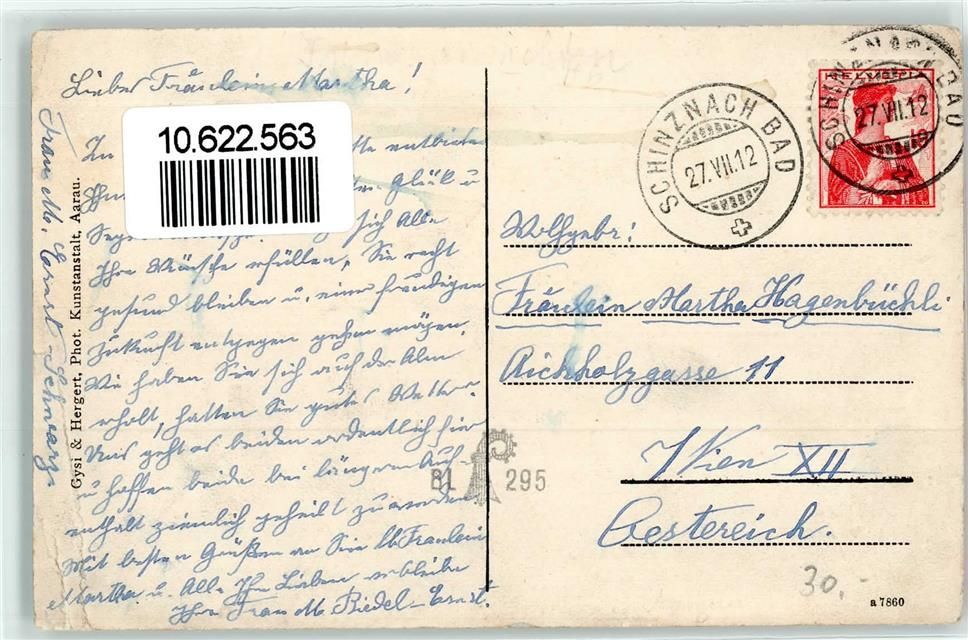 Liebes Fräulein Martha!
10.622.563
Glück u
sich Alle
Ihre Wünsche erfüllen, Sie recht
gesund bleiben u. einer freudigen
Zukunft entgegen gehen mögen.
Wie haben Sie sich auf der Alm
erholt, hatten Sie gutes Wetter.
Uns geht es beiden ordentlich hier
u hoffen beide bei längerm Auf-
enthalt ziemlich geheilt zu werden
Mit besten Grüßen an Sie lb Fraulein
Martha u. Alle Ihre Lieben verbleibe
Ihre Frau M. Riedel-Ernst.
Frau M. Ernst-Schwarz
Gysi & Hergert, Phot. Kunstanstalt, Aarau.
SCHINZNACH BAD
27.VII.12
HELVETIA
SCHINZNACH BAD
27.VII.12
10
Wohlgebr:
Fräulein Martha Hagenbüchli
Aichholzgasse 11
Wien XII
Oestereich.
81 295
30.-
a 7860